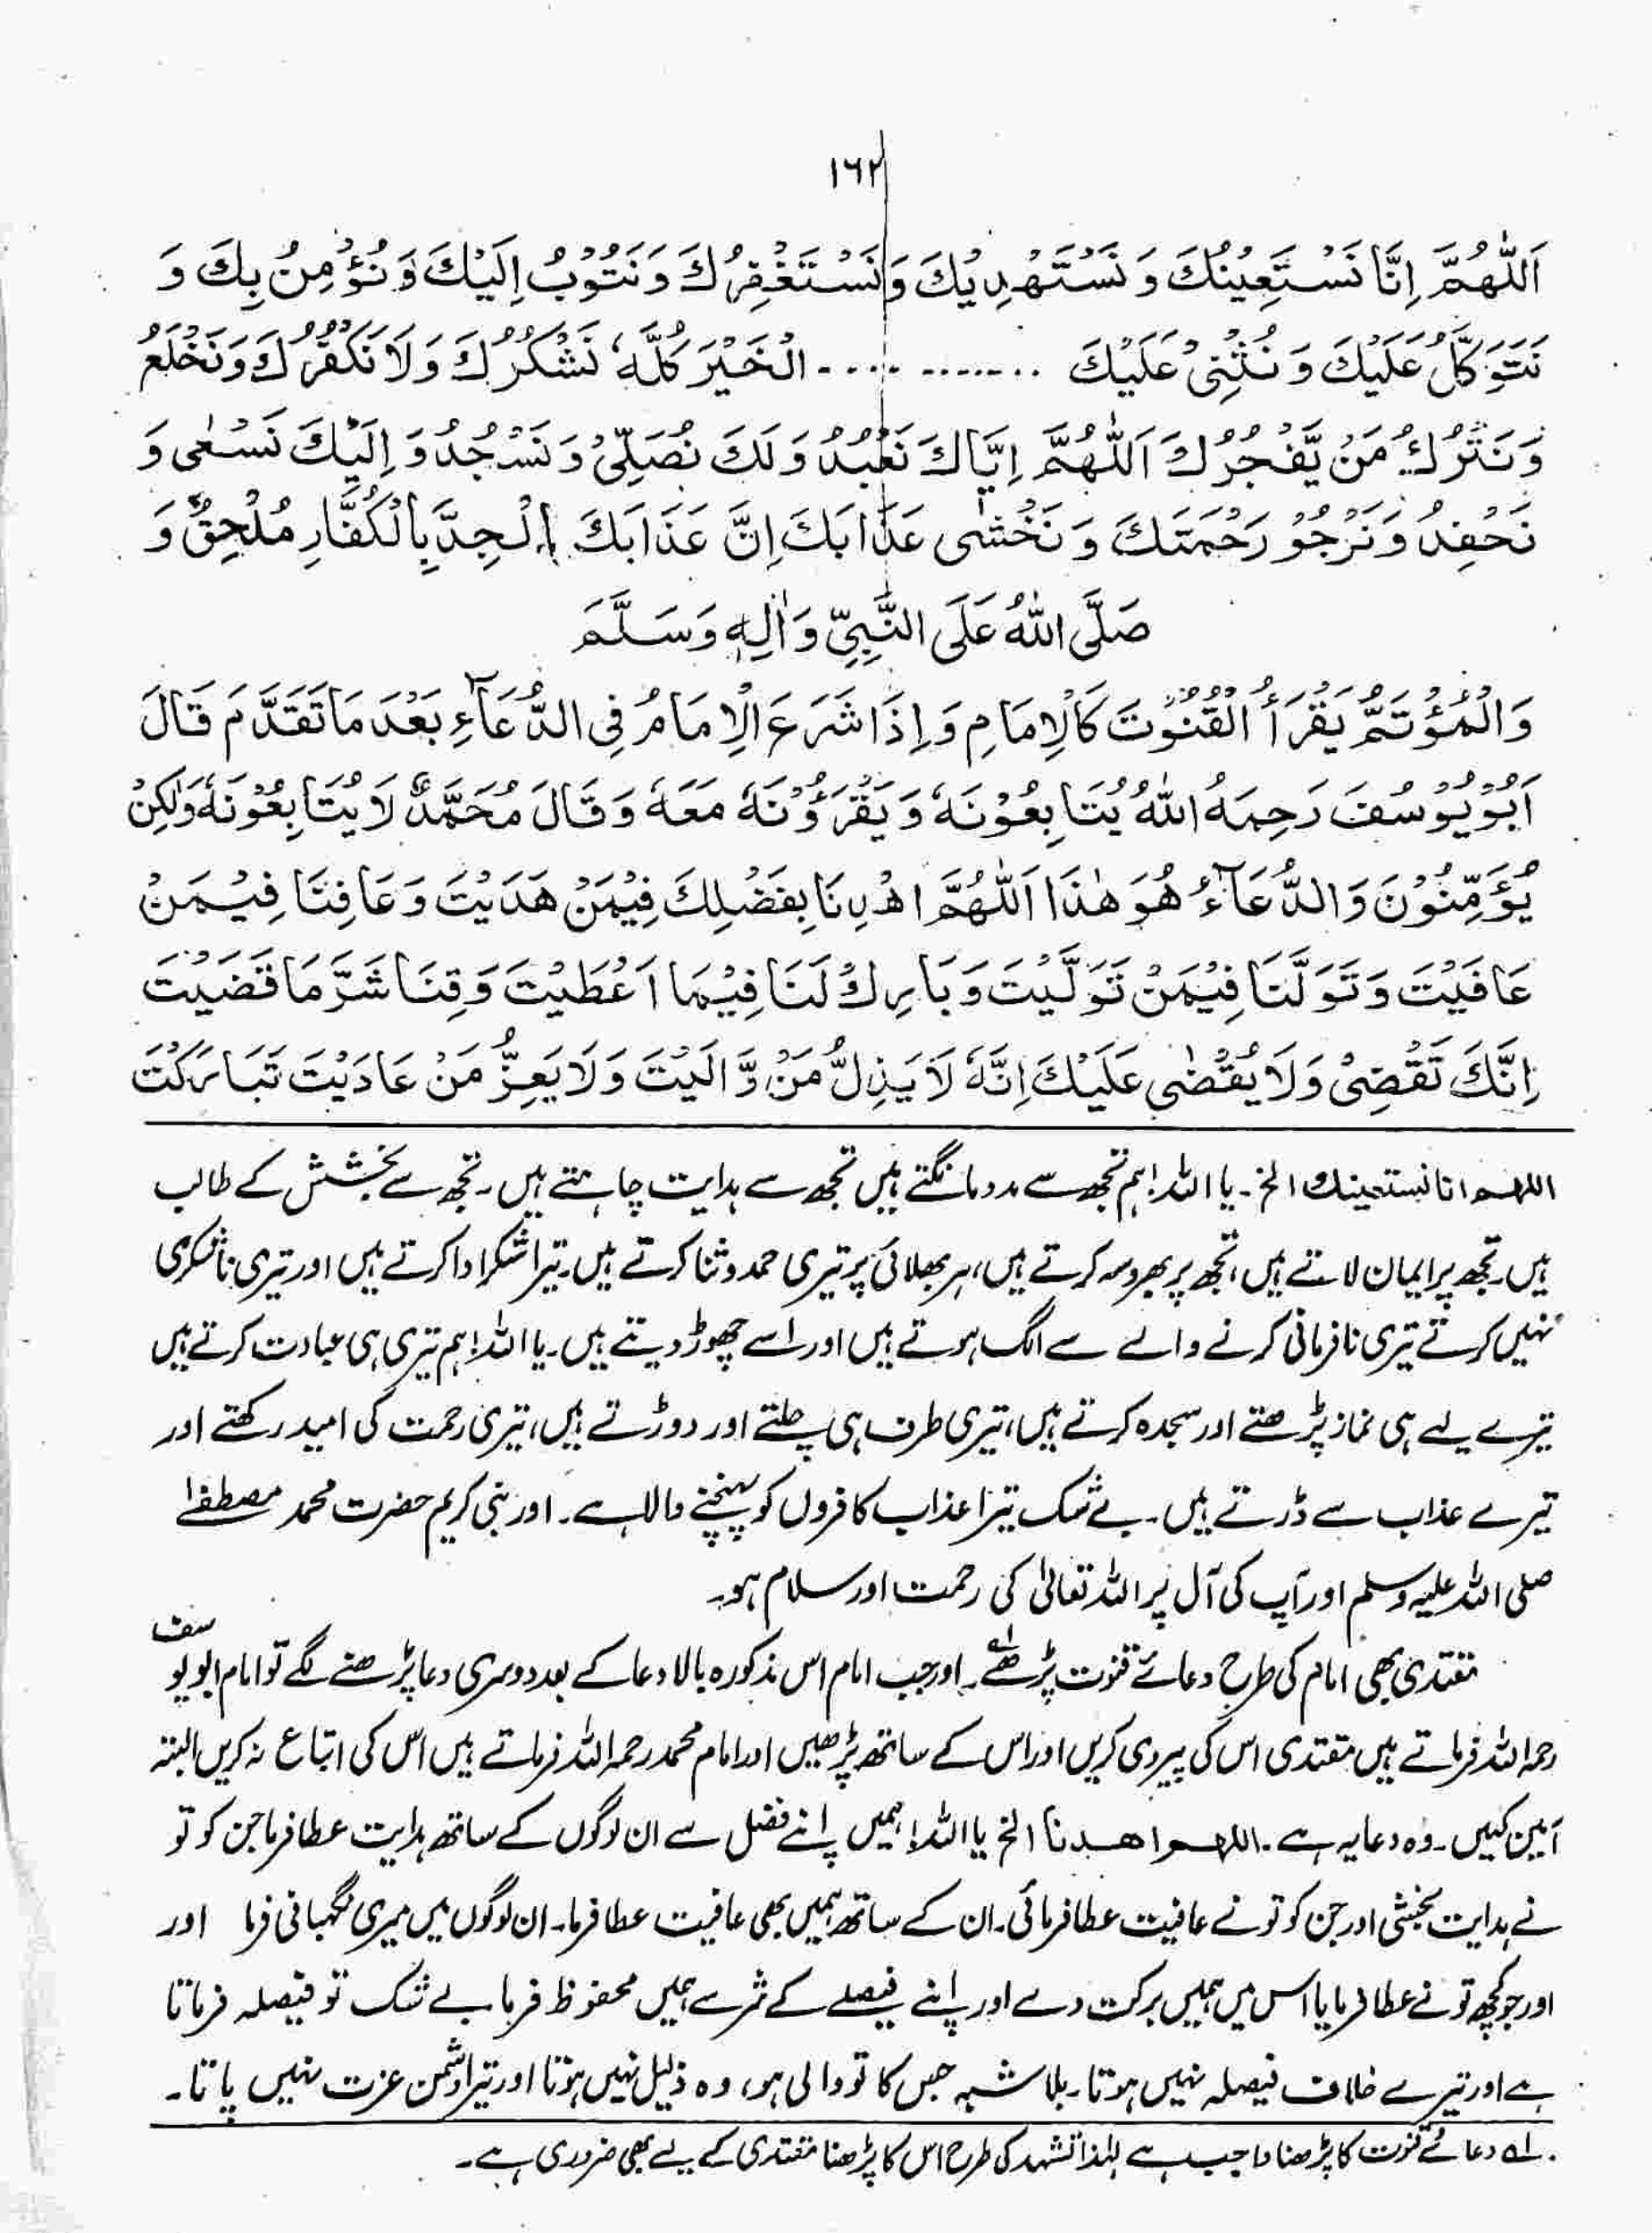 ١٦٢
اَللّٰهُمَّ اِنَّا نَسْتَعِيْنُكَ وَ نَسْتَهْدِيْكَ وَنَسْتَغْفِرُكَ وَنَتُوْبُ اِلَيْكَ وَ نُؤْمِنُ بِكَ وَ
نَتَوَكَّلُ عَلَيْكَ وَ نُثْنِىْ عَلَيْكَ ........... الْخَيْرَ كُلَّهٗ نَشْكُرُكَ وَلَا نَكْفُرُكَ وَنَخْلَعُ
وَنَتْرُكُ مَنْ يَّفْجُرُكَ اَللّٰهُمَّ اِيَّاكَ نَعْبُدُ وَلَكَ نُصَلِّىْ وَنَسْجُدُ وَ اِلَيْكَ نَسْعٰى وَ
نَحْفِدُ وَنَرْجُوْ رَحْمَتَكَ وَ نَخْشٰى عَذَابَكَ اِنَّ عَذَابَكَ الْجِدَّ بِالْكُفَّارِ مُلْحِقٌ وَ
صَلَّى اللّٰهُ عَلَى النَّبِيِّ وَاٰلِهٖ وَسَلَّمَ
وَالْمُؤْتَمُّ يَقْرَأُ الْقُنُوْتَ كَالْاِمَامِ وَاِذَا شَرَعَ الْاِمَامُ فِى الدُّعَآءِ بَعْدَ مَا تَقَدَّمَ قَالَ
اَبُوْيُوْسُفَ رَحِمَهُ اللّٰهُ يُتَابِعُوْنَهٗ وَيَقْرَؤُوْنَهٗ مَعَهٗ وَقَالَ مُحَمَّدٌ لَا يُتَابِعُوْنَهٗ وَلٰكِنْ
يُؤَمِّنُوْنَ وَالدُّعَآءُ هُوَ هٰذَا اَللّٰهُمَّ اهْدِنَا بِفَضْلِكَ فِيْمَنْ هَدَيْتَ وَعَافِنَا فِيْمَنْ
عَافَيْتَ وَتَوَلَّنَا فِيْمَنْ تَوَلَّيْتَ وَبَارِكْ لَنَا فِيْمَا اَعْطَيْتَ وَقِنَا شَرَّ مَا قَضَيْتَ
اِنَّكَ تَقْضِىْ وَلَا يُقْضٰى عَلَيْكَ اِنَّهٗ لَا يَذِلُّ مَنْ وَّالَيْتَ وَلَا يَعِزُّ مَنْ عَادَيْتَ تَبَارَكْتَ
اللهم انا نستعینك الخ۔ یا اللہ! ہم تجھ سے مدد مانگتے ہیں تجھ سے ہدایت چاہتے ہیں۔ تجھ سے بخشش کے طالب
ہیں۔ تجھ پر ایمان لاتے ہیں، تجھ پر بھروسہ کرتے ہیں، ہر بھلائی پر تیری حمد و ثنا کرتے ہیں۔ تیرا شکر ادا کرتے ہیں اور تیری ناشکری
نہیں کرتے تیری نافرمانی کرنے والے سے الگ ہوتے ہیں اور اسے چھوڑ دیتے ہیں۔ یا اللہ! ہم تیری ہی عبادت کرتے ہیں
تیرے لیے ہی نماز پڑھتے اور سجدہ کرتے ہیں، تیری طرف ہی چلتے اور دوڑتے ہیں، تیری رحمت کی امید رکھتے اور
تیرے عذاب سے ڈرتے ہیں۔ بے شک تیرا عذاب کافروں کو پہنچنے والا ہے۔ اور نبی کریم حضرت محمد مصطفٰے
صلی اللہ علیہ وسلم اور آپ کی آل پر اللہ تعالیٰ کی رحمت اور سلام ہو۔
مقتدی بھی امام کی طرح دعائے قنوت پڑھے۔ اور جب امام اس مذکورہ بالا دعا کے بعد دوسری دعا پڑھنے لگے تو امام ابویوسف
رحمہ اللہ فرماتے ہیں مقتدی اس کی پیروی کریں اور اس کے ساتھ پڑھیں اور امام محمد رحمہ اللہ فرماتے ہیں اس کی اتباع نہ کریں البتہ
آمین کہیں۔ وہ دعا یہ ہے۔ اللهم اهدنا الخ یا اللہ! ہمیں اپنے فضل سے ان لوگوں کے ساتھ ہدایت عطا فرما جن کو تو
نے ہدایت بخشی اور جن کو تو نے عافیت عطا فرمائی۔ ان کے ساتھ ہمیں بھی عافیت عطا فرما۔ ان لوگوں میں میری نگہبانی فرما اور
اور جو کچھ تو نے عطا فرمایا اس میں ہمیں برکت دے اور اپنے فیصلے کے شر سے ہمیں محفوظ فرما بے شک تو فیصلہ فرماتا
ہے اور تیرے خلاف فیصلہ نہیں ہوتا۔ بلاشبہ جس کا تو والی ہو، وہ ذلیل نہیں ہوتا اور تیرا دشمن عزت نہیں پاتا۔
لہ دعائے قنوت کا پڑھنا واجب ہے لہٰذا تشہد کی طرح اس کا پڑھنا مقتدی کے لیے بھی ضروری ہے۔